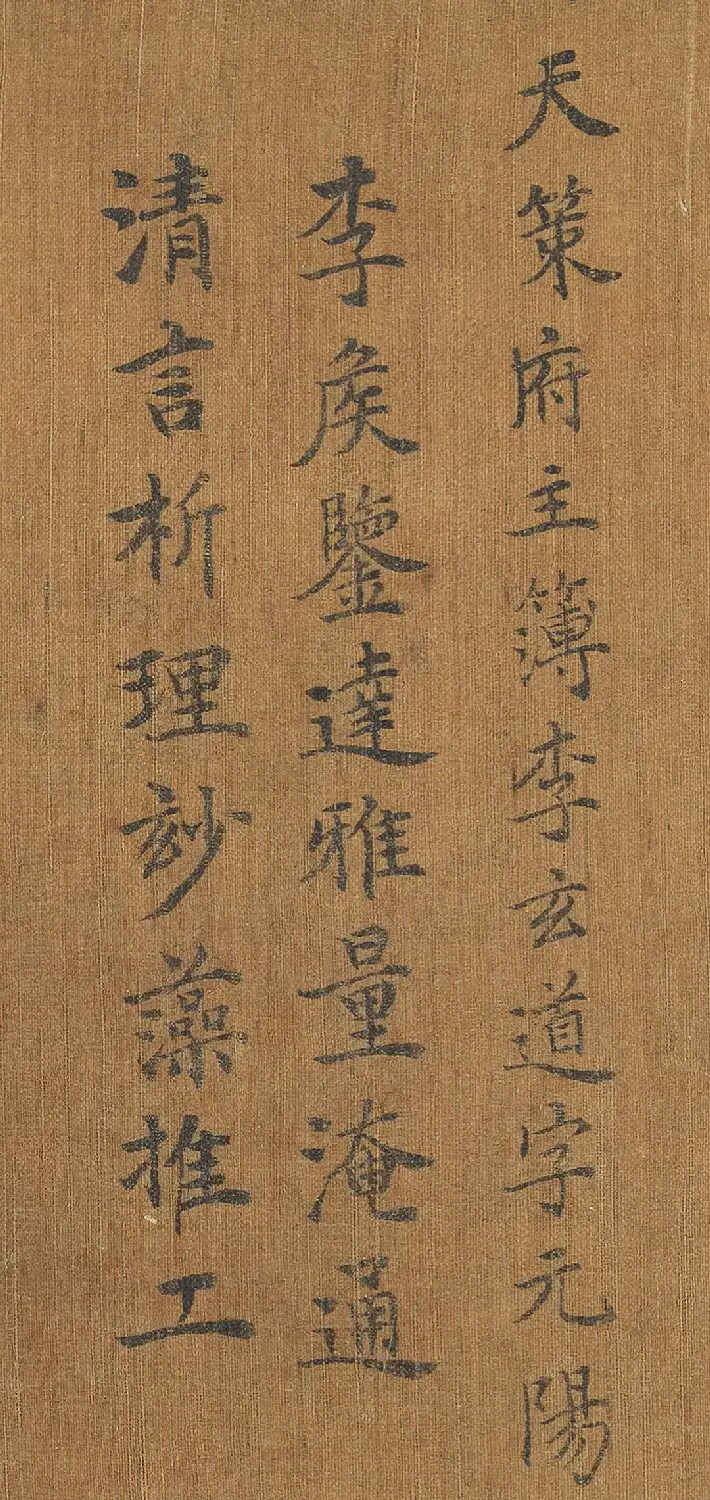 天策府主簿李玄道字元陽
李侯鑒達雅量淹通
清言析理玅藻推工